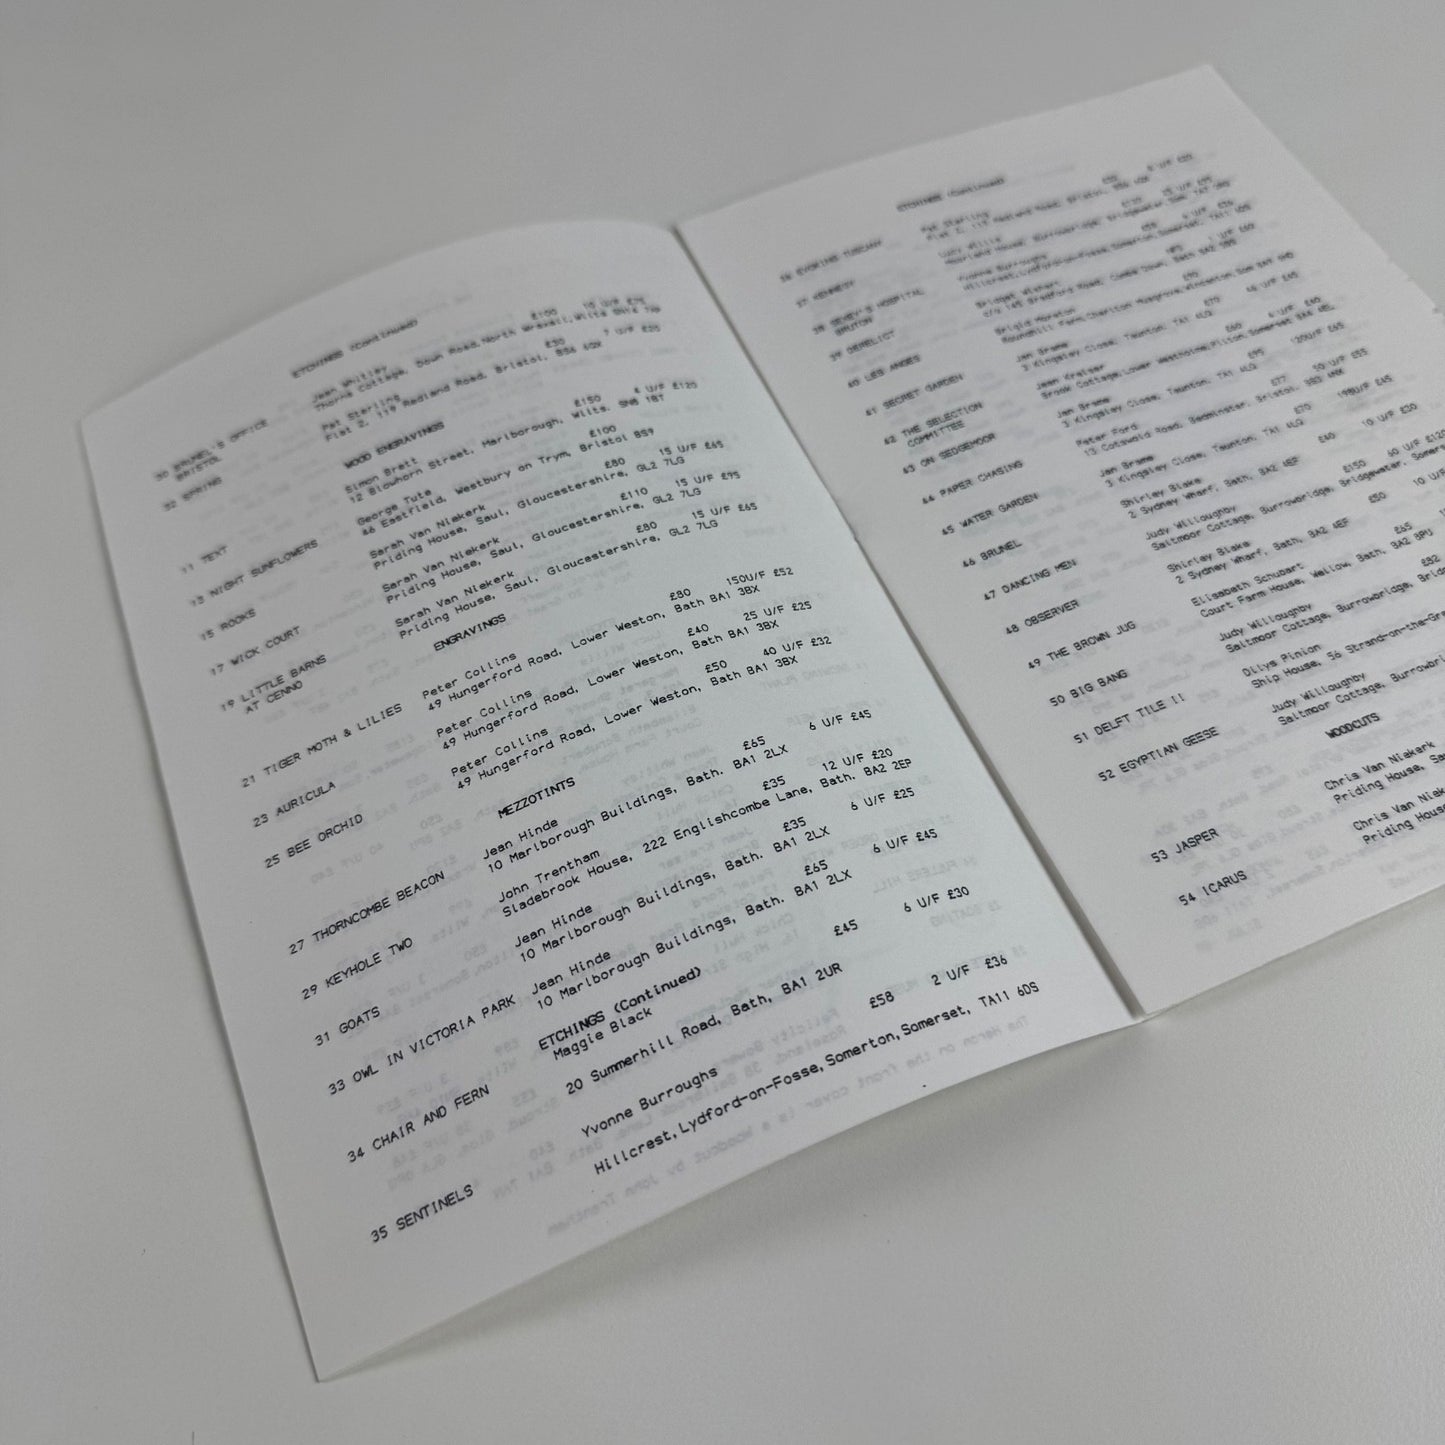 ETCHINGS (Continued)
30 BRUNEL'S OFFICE Jean Whitley £100 15 U/F £75
BRISTOL Thorns Cottage, Down Road, North Wraxall, Wilts SN14 7AP
32 SPRING Pat Sterling £30 7 U/F £20
Flat 2, 119 Redland Road, Bristol, BS6 6QX
WOOD ENGRAVINGS
11 TEXT Simon Brett £150 4 U/F £120
12 Blowhorn Street, Marlborough, Wilts. SN8 1BT
13 NIGHT SUNFLOWERS George Tute £100
46 Eastfield, Westbury on Trym, Bristol BS9
15 ROOKS Sarah Van Niekerk £80 15 U/F £65
Priding House, Saul, Gloucestershire, GL2 7LG
17 WICK COURT Sarah Van Niekerk £110 15 U/F £95
Priding House, Saul, Gloucestershire, GL2 7LG
19 LITTLE BARNS Sarah Van Niekerk £80 15 U/F £65
AT CENNO Priding House, Saul, Gloucestershire, GL2 7LG
ENGRAVINGS
21 TIGER MOTH & LILIES Peter Collins £80 150U/F £52
49 Hungerford Road, Lower Weston, Bath BA1 3BX
23 AURICULA Peter Collins £40 25 U/F £25
49 Hungerford Road, Lower Weston, Bath BA1 3BX
25 BEE ORCHID Peter Collins £50 40 U/F £32
49 Hungerford Road, Lower Weston, Bath BA1 3BX
MEZZOTINTS
27 THORNCOMBE BEACON Jean Hinde £65 6 U/F £45
10 Marlborough Buildings, Bath. BA1 2LX
29 KEYHOLE TWO John Trentham £35 12 U/F £20
Sladebrook House, 222 Englishcombe Lane, Bath. BA2 2EP
31 GOATS Jean Hinde £35 6 U/F £25
10 Marlborough Buildings, Bath. BA1 2LX
33 OWL IN VICTORIA PARK Jean Hinde £65 6 U/F £45
10 Marlborough Buildings, Bath. BA1 2LX
ETCHINGS (Continued)
34 CHAIR AND FERN Maggie Black £45 6 U/F £30
20 Summerhill Road, Bath, BA1 2UR
35 SENTINELS Yvonne Burroughs £58 2 U/F £36
Hillcrest, Lydford-on-Fosse, Somerton, Somerset, TA11 6DS
ETCHINGS (Continued)
36 EVOKING TUSCANY Pat Sterling
Flat 2, 119 Redland Road, Bristol, BS6
37 KENNESY Judy Willis
Moorland House, Burrowbridge, Bridgewater, Som
38 SEXEY'S HOSPITAL Yvonne Burroughs
BRUTON Hillcrest, Lydford-on-Fosse, Somerton, Somerset, TA11 6DS
39 DERELICT Bridget Wishart NFS
c/o 145 Bradford Road, Combe Down, Bath BA2
40 LES ANGES Brigid Moreton £90
Roundhill Farm, Charlton Musgrove, Wincanton, Som
41 SECRET GARDEN Jan Brame £70 40 U/F £45
3 Kingsley Close, Taunton, TA1 4LQ
42 THE SELECTION Jean Kreiser £60 4 U/F £40
COMMITTEE Brook Cottage, Lower Westholme, Pilton, Somerset BA4 4EL
43 ON SEDGEMOOR Jan Brame £95 120U/F £65
3 Kingsley Close, Taunton, TA1 4LQ
44 PAPER CHASING Peter Ford £77 30 U/F £55
13 Cotswold Road, Bedminster, Bristol. BS3 4NX
45 WATER GARDEN Jan Brame £70 198U/F £45
3 Kingsley Close, Taunton, TA1 4LQ
46 BRUNEL Shirley Blake £40 10 U/F £30
2 Sydney Wharf, Bath, BA2 4EF
47 DANCING MEN Judy Willoughby £150 60 U/F £120
Saltmoor Cottage, Burrowbridge, Bridgewater, Somer
48 OBSERVER Shirley Blake £50 10 U/
2 Sydney Wharf, Bath, BA2 4EF
49 THE BROWN JUG Elisabeth Schubert £65
Court Farm House, Wellow, Bath, BA2 8PU
50 BIG BANG Judy Willoughby £82
Saltmoor Cottage, Burrowbridge, Bridg
51 DELFT TILE II Dilys Pinion
Ship House, 56 Strand-on-the-Gre
52 EGYPTIAN GEESE Judy Willoughby
Saltmoor Cottage, Burrowbri
WOODCUTS
53 JASPER Chris Van Niekerk
Priding House, Sa
54 ICARUS Chris Van Niek
Priding House